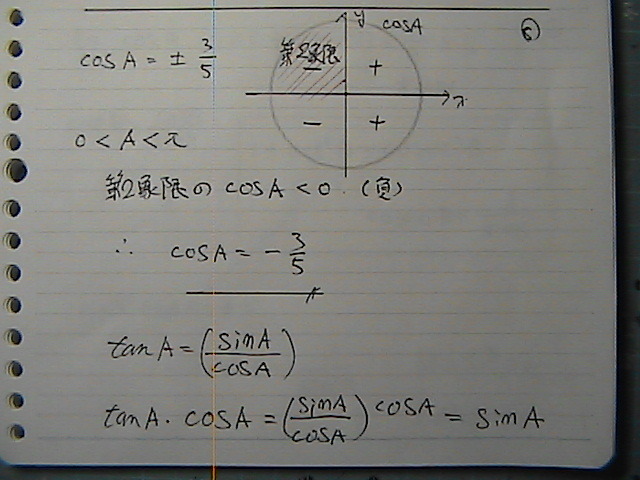 ⑥
y cosA
cosA = ± 3/5
第2象限
− +
x
− +
0 < A < π
第2象限の cosA < 0. (負)
∴ cosA = − 3/5
tanA = (sinA/cosA)
tanA・cosA = (sinA/cosA) cosA = sinA